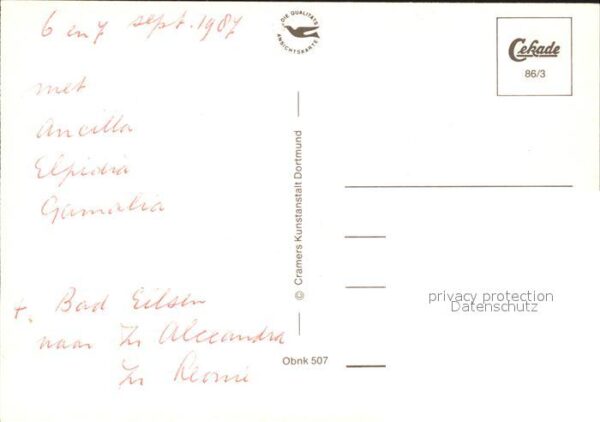 6 en 7 sept. 1987
met
Ancilla
Elpidia
Gamalia
+. Bad Eilsen
naar Zr Alexandra
Zr Leonie
DIE QUALITÄTS ANSICHTSKARTE
© Cramers Kunstanstalt Dortmund
Obnk 507
Cekade
86/3
privacy protection
Datenschutz